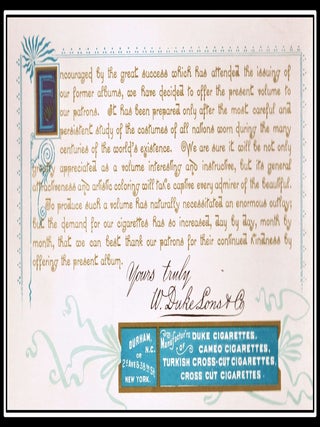 Encouraged by the great success which has attended the issuing of
our former albums, we have decided to offer the present volume to
our patrons. It has been prepared only after the most careful and
persistent study of the costumes of all nations worn during the many
centuries of the world's existence. We are sure it will be not only
greatly appreciated as a volume interesting and instructive, but its general
attractiveness and artistic coloring will take captive every admirer of the beautiful.
To produce such a volume has naturally necessitated an enormous outlay;
but the demand for our cigarettes has so increased, day by day, month by
month, that we can best thank our patrons for their continued kindness by
offering the present album.
Yours truly
W. Duke Sons & Co
DURHAM,
N.C.
OR
NEW YORK.
Manufactur's
of
DUKE CIGARETTES,
CAMEO CIGARETTES,
TURKISH CROSS-CUT CIGARETTES,
CROSS CUT CIGARETTES.